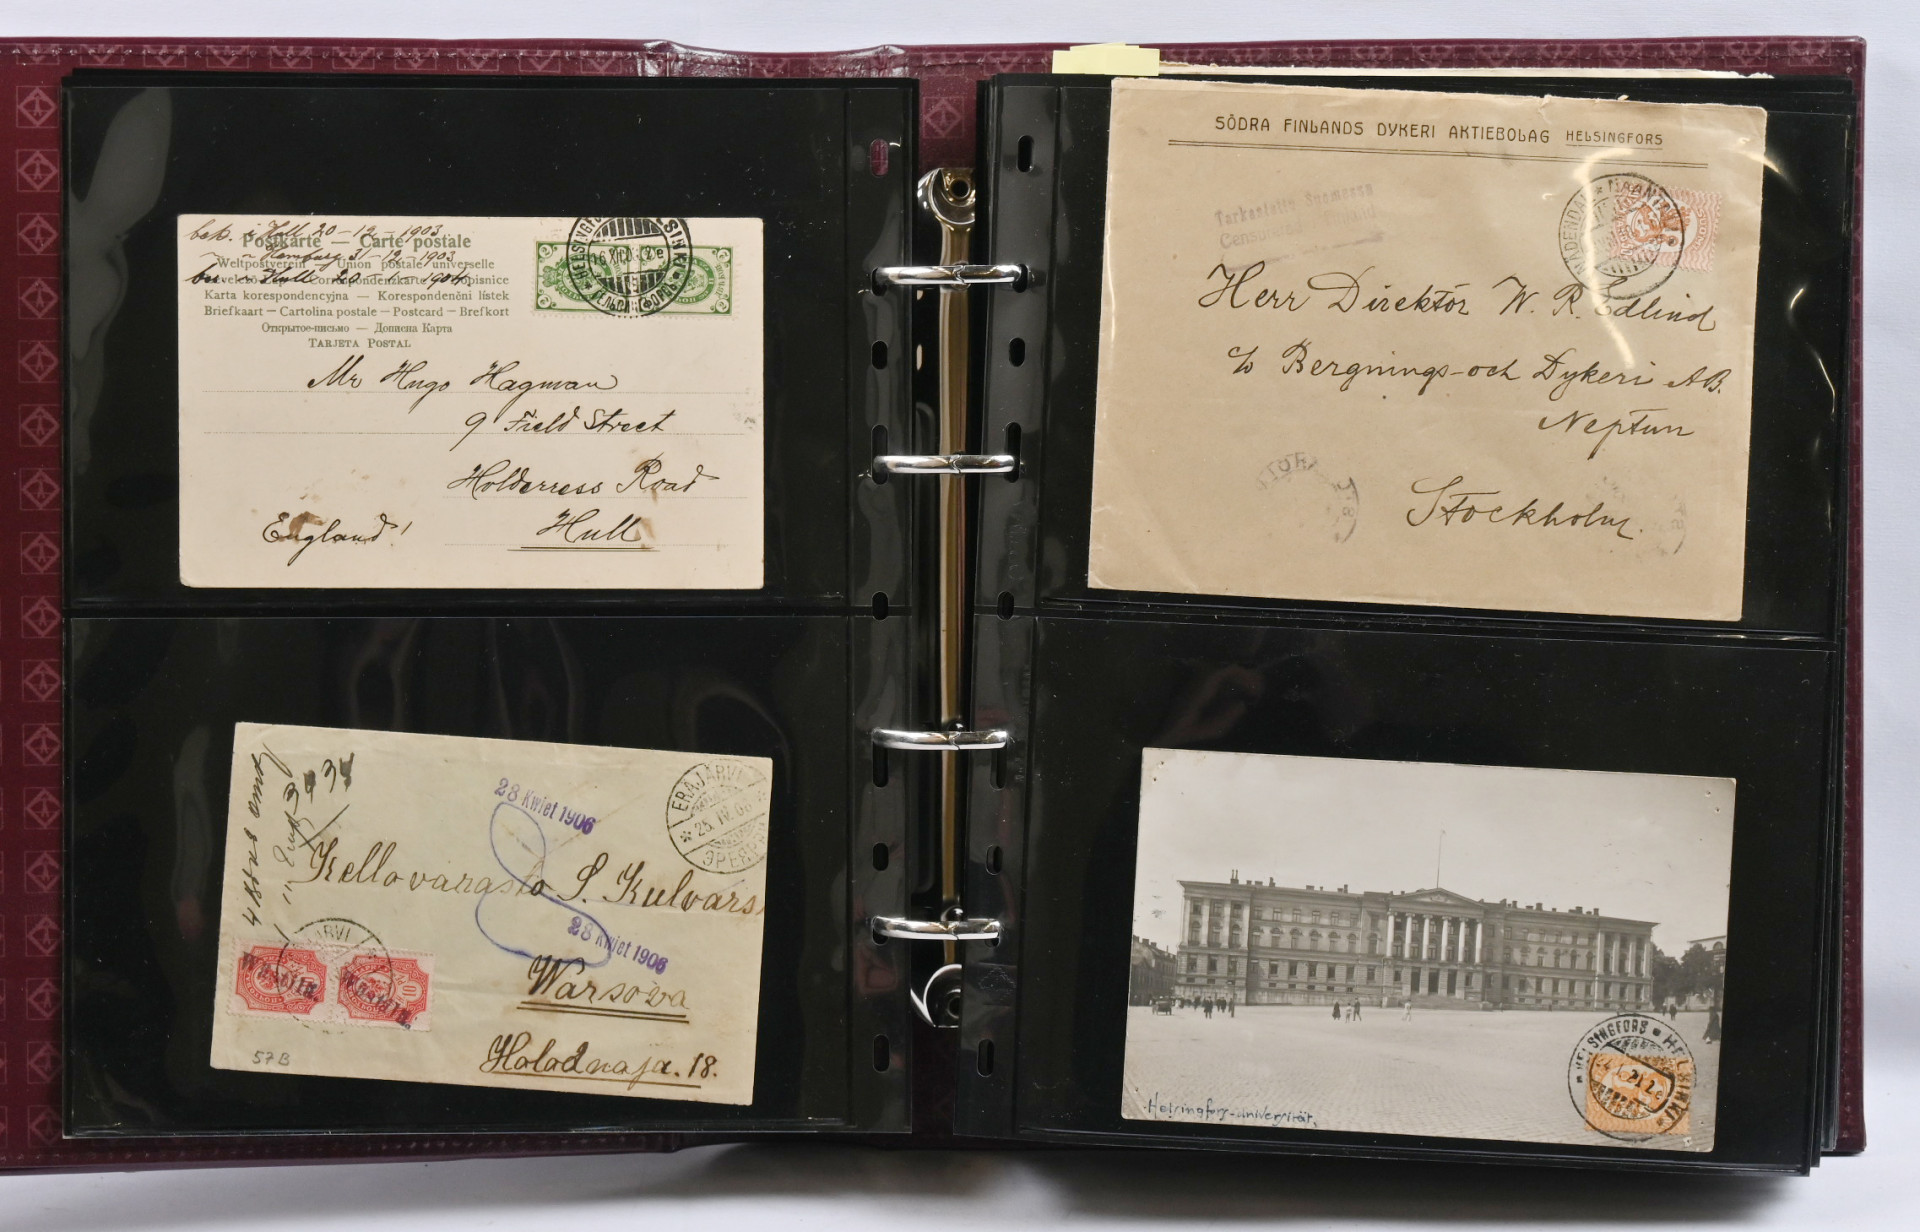 bek. i Hull 20-12-1903
" Hamburg 31-12-1903
Hull 20-1-1904
Postkarte — Carte postale
Weltpostverein — Union postale universelle
Correspondenzkarte
Karta korespondencyjna — Korespondenční lístek
Briefkaart — Cartolina postale — Postcard — Brefkort
Открытое письмо — Дописна Карта
TARJETA POSTAL
HELSINKI
Mr Hugo Hagman
9 Field Street
Holderress Road
Hull
England!
28 Kwiet 1906
ERÄJÄRVI
25.IV.06
Kellovarasto S. Kulvars
28 Kwiet 1906
Warsova
Holodnaja. 18.
57B
SÖDRA FINLANDS DYKERI AKTIEBOLAG HELSINGFORS
Tarkastettu Suomessa
NÅDENDAL * NAANTALI
Herr Direktör W. R. Edlind
c/o Bergnings- och Dykeri AB.
Neptun
Stockholm.
HELSINGFORS * HELSINKI
Helsingfors-universität.